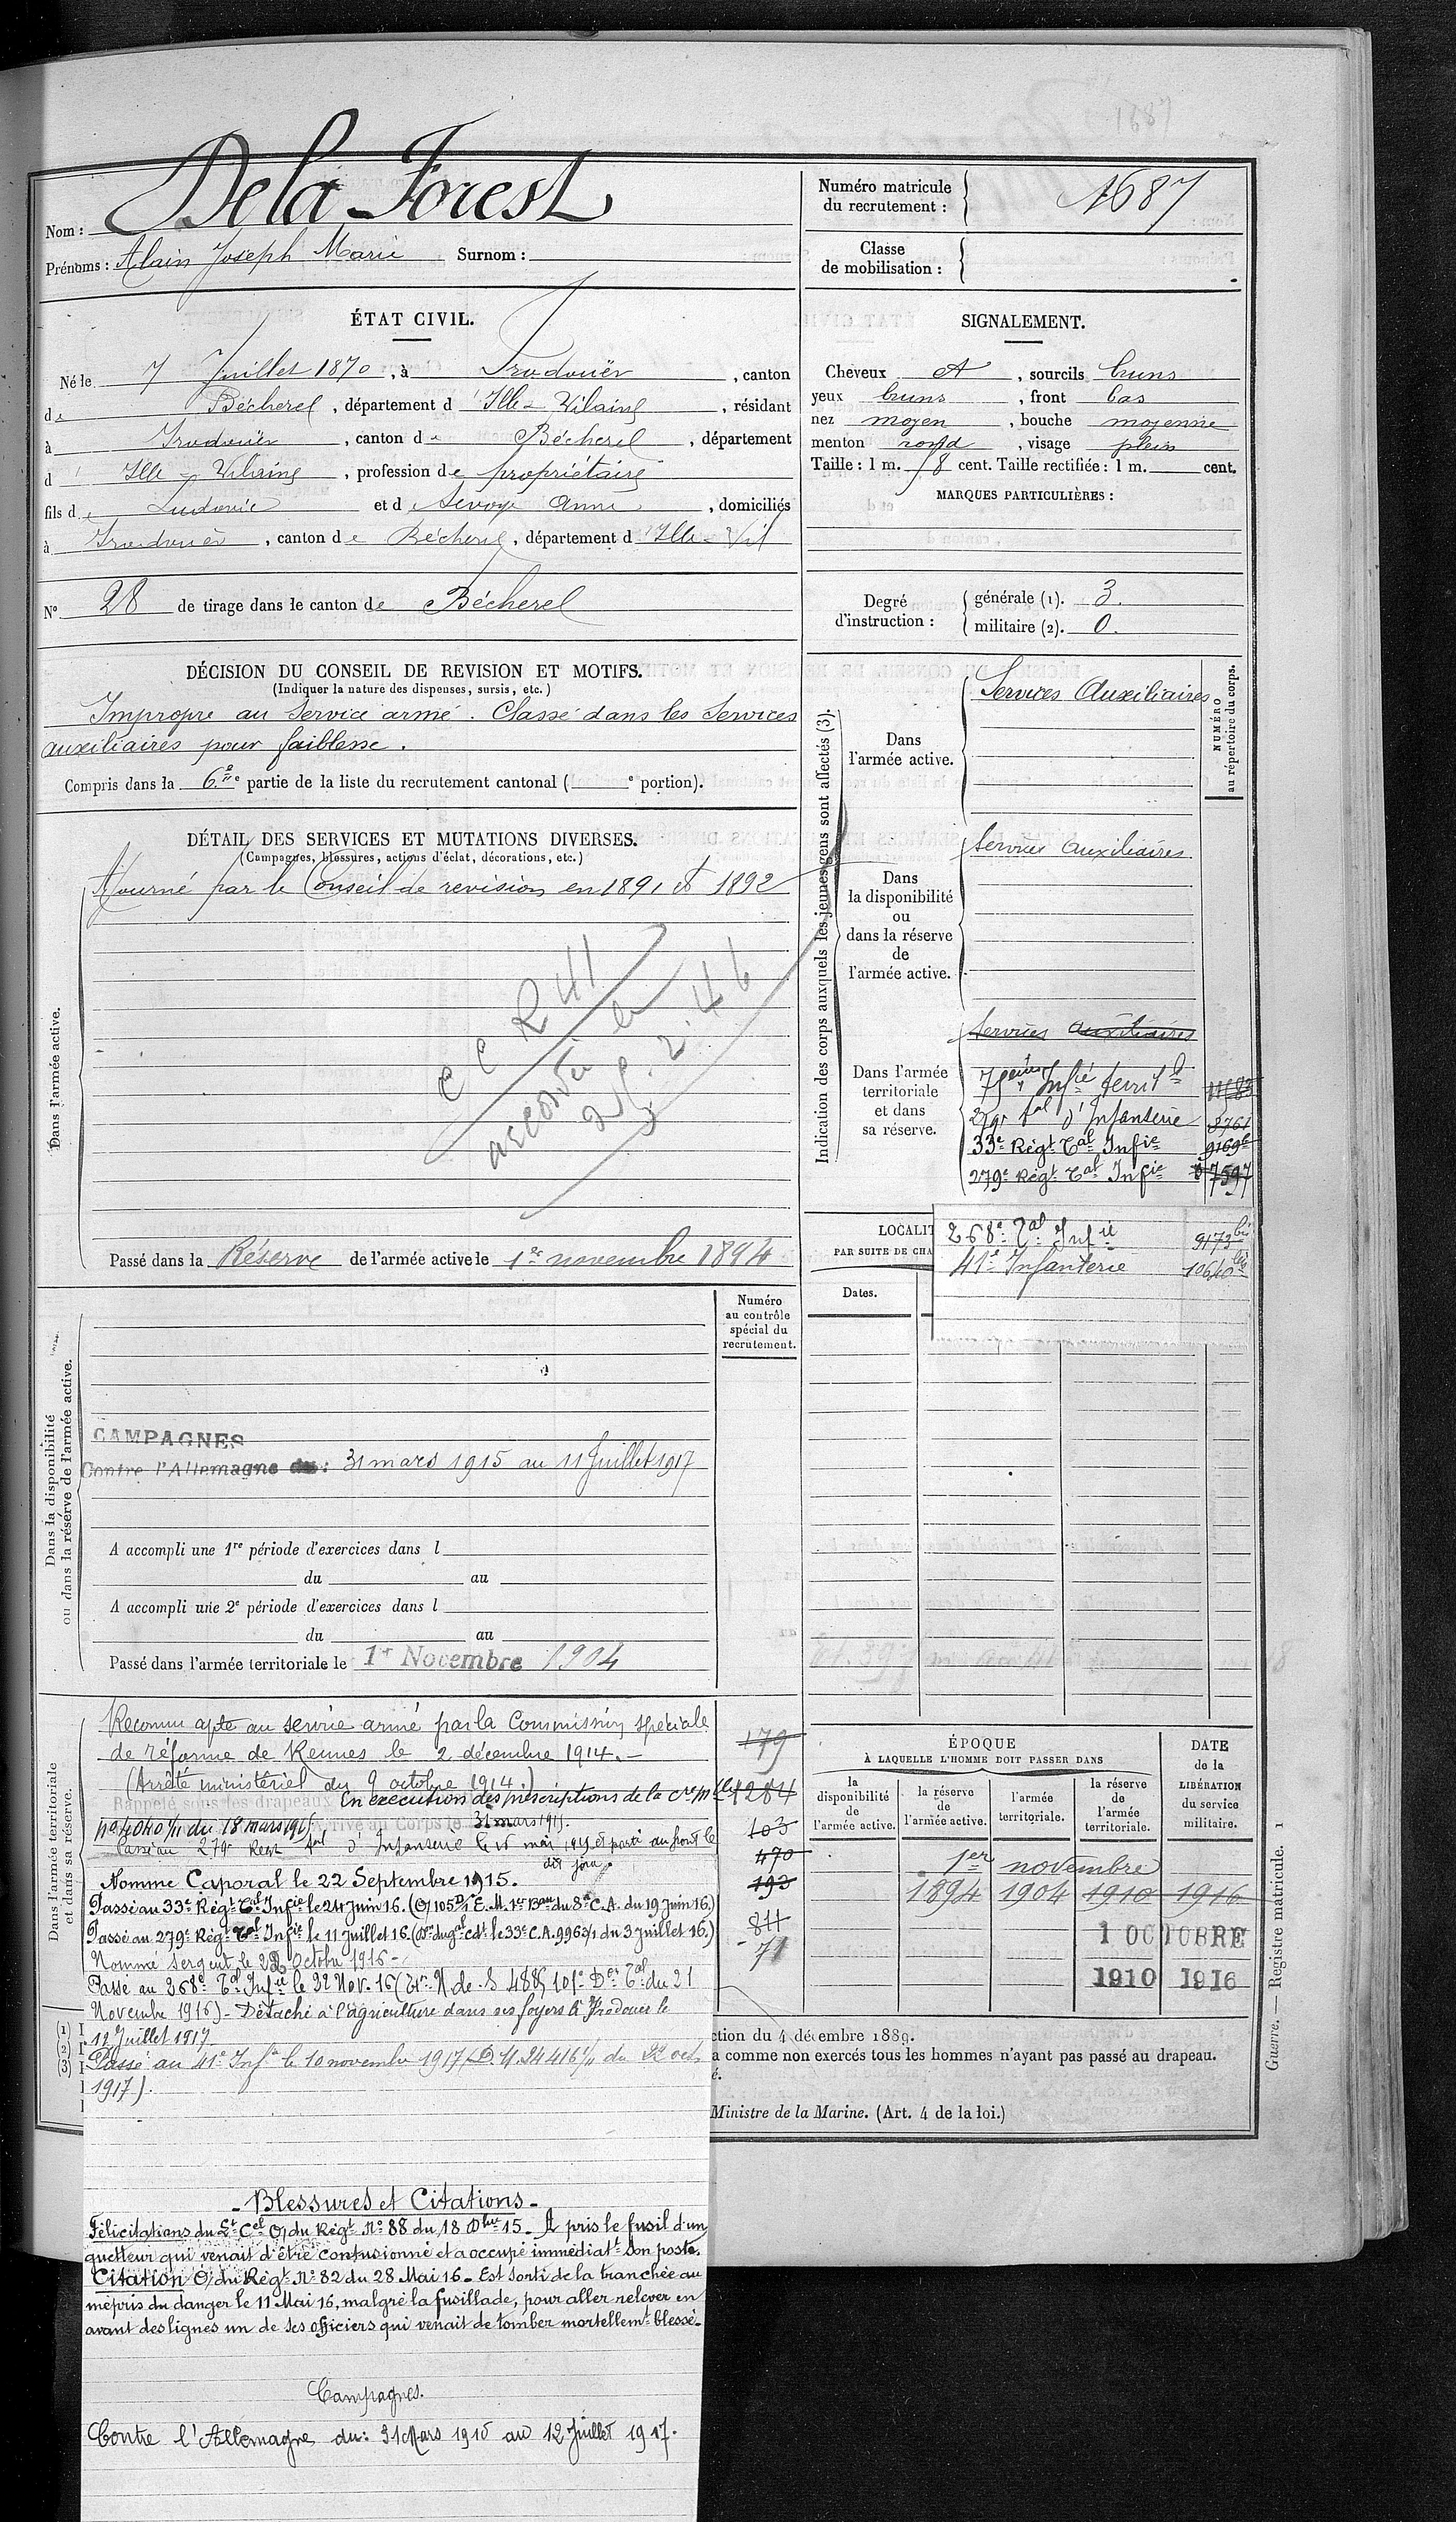 De la Forest
Nom :
Prénoms : Alain Joseph Marie Surnom :
Numéro matricule du recrutement : 1687
Classe de mobilisation :
ÉTAT CIVIL.
Né le 7 Juillet 1870, à Irodouër, canton
de Bécherel, département d'Ille-&-Vilaine, résidant
à Irodouër, canton de Bécherel, département
d'Ille-&-Vilaine, profession de propriétaire
fils de Ludovic et d Anne, domiciliés
à Irodouër, canton de Bécherel, département d'Ille-&-Vil
N° 28 de tirage dans le canton de Bécherel
SIGNALEMENT.
Cheveux et, sourcils bruns
yeux bruns, front bas
nez moyen, bouche moyenne
menton rond, visage plein
Taille : 1 m. 78 cent. Taille rectifiée : 1 m. cent.
MARQUES PARTICULIÈRES :
Degré d'instruction :
générale (1). 3.
militaire (2). 0.
DÉCISION DU CONSEIL DE REVISION ET MOTIFS.
(Indiquer la nature des dispenses, sursis, etc.)
Impropre au Service armé. Classé dans les Services
auxiliaires pour faiblesse.
Compris dans la 6e partie de la liste du recrutement cantonal ( e portion).
DÉTAIL DES SERVICES ET MUTATIONS DIVERSES.
(Campagnes, blessures, actions d'éclat, décorations, etc.)
Dans l'armée active.
Ajourné par le Conseil de revision en 1891 et 1892
C C R 41
accordée le
2.46
Passé dans la Réserve de l'armée active le 1er novembre 1894
Indication des corps auxquels les jeunes gens sont affectés (3).
NUMÉRO au répertoire du corps.
Dans l'armée active.
Services Auxiliaires
Dans la disponibilité ou dans la réserve de l'armée active.
Services Auxiliaires
Dans l'armée territoriale et dans sa réserve.
Services Auxiliaires
75eme Infie territle
279e tal d'Infanterie 8761
33e Régt Tal Infie 9169
279e Régt Tal Infie 7597
268e Tal Infie 9173 bis
41e Infanterie 10640 bis
LOCALIT
PAR SUITE DE CHA
Dates.
Numéro au contrôle spécial du recrutement.
Dans la disponibilité ou dans la réserve de l'armée active.
CAMPAGNES
Contre l'Allemagne du : 31 mars 1915 au 11 Juillet 1917
A accompli une 1re période d'exercices dans l
du au
A accompli une 2e période d'exercices dans l
du au
Passé dans l'armée territoriale le 1er Novembre 1904
Dans l'armée territoriale et dans sa réserve.
Reconnu apte au service armé par la Commission spéciale
de réforme de Rennes le 2 décembre 1914.-
(Arrêté ministériel du 9 octobre 1914.)
Rappelé sous les drapeaux En exécution des prescriptions de la Cre Mlle
n° 4040 1/11 du 18 mars 1915. Arrivé au Corps le 31 mars 1915.
Passé au 279e Regt tal d'Infanterie le 15 mai 1915 et parti au front le
dit jour.
Nommé Caporal le 22 Septembre 1915.
Passé au 33e Régt Tal Infie le 24 Juin 16. (O/105 D/1 E.M. 1er Bau du 8e C.A. du 19 Juin 16.)
Passé au 279e Régt Tal Infie le 11 Juillet 16. (On du gal cdt le 33e C.A. 9963/1 du 3 Juillet 16.)
Nommé Sergent le 22 Octobre 1916 -
Passé au 268e Tal Infie le 32 Nov. 16 (N. de S 4885 101e Don Tal du 21
Novembre 1916) - Détaché à l'agriculture dans ses foyers à Irodouer le
12 Juillet 1917
Passé au 41e Infie le 10 novembre 1917 (D. M. 24416 1/11 du 22 oct
1917).
179
1284
103
470
193
811
71
ÉPOQUE
À LAQUELLE L'HOMME DOIT PASSER DANS
la disponibilité de l'armée active.
la réserve de l'armée active.
l'armée territoriale.
la réserve de l'armée territoriale.
DATE de la LIBÉRATION du service militaire.
1er novembre
1894 1904 1910 1916
1 OCTOBRE
1910 1916
(1)
(2)
(3)
ction du 4 décembre 1889.
a comme non exercés tous les hommes n'ayant pas passé au drapeau.
é.
Ministre de la Marine. (Art. 4 de la loi.)
Guerre. — Registre matricule. 1
- Blessures et Citations -
Félicitations du Lt Cel O/ du Régt N° 88 du 18 Dbre 15 - A pris le fusil d'un
guetteur qui venait d'être contusionné et a occupé immédiatt son poste.
Citation O/ du Régt N° 82 du 28 Mai 16 - Est sorti de la tranchée au
mépris du danger le 11 Mai 16, malgré la fusillade, pour aller relever en
avant des lignes un de ses officiers qui venait de tomber mortellemt blessé -
Campagnes.
Contre l'Allemagne du : 31 Mars 1915 au 12 Juillet 1917.